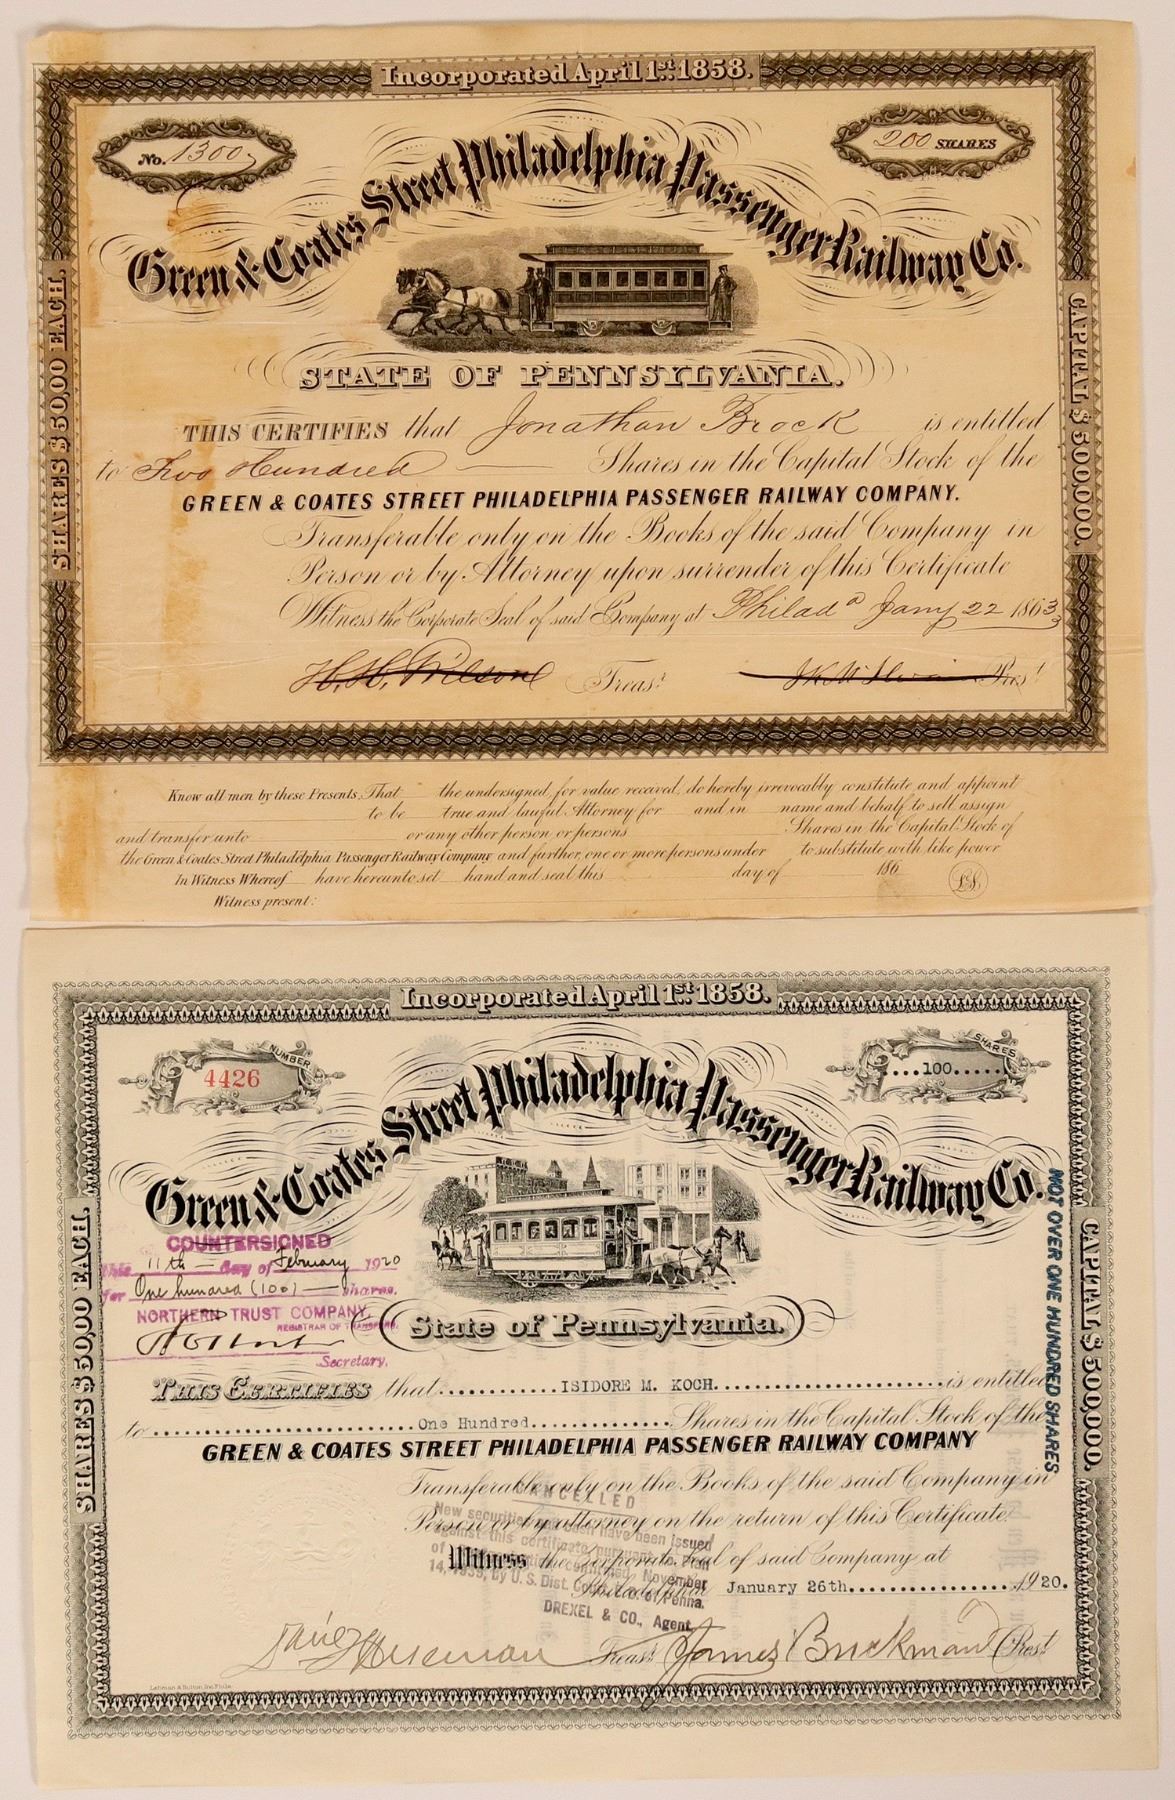 Incorporated April 1st 1858.
No. 1300
200 SHARES
Green & Coates Street Philadelphia Passenger Railway Co.
SHARES $50,00 EACH.
CAPITAL $500,000.
STATE OF PENNSYLVANIA.
THIS CERTIFIES that Jonathan Brock is entitled
to Two Hundred Shares in the Capital Stock of the
GREEN & COATES STREET PHILADELPHIA PASSENGER RAILWAY COMPANY.
Transferable only on the Books of the said Company in
Person or by Attorney upon surrender of this Certificate
Witness the Corporate Seal of said Company at Philada Jany 22 1863
H. H. Wilson Treast Prest
Know all men by these Presents, That the undersigned, for value received, do hereby irrevocably constitute and appoint
to be true and lawful Attorney for and in name and behalf to sell, assign
and transfer unto or any other person or persons Shares in the Capital Stock of
the Green & Coates Street Philadelphia Passenger Railway Company and further, one or more persons under to substitute with like power
In Witness Whereof have hereunto set hand and seal this day of 186
L.S.
Witness present:
Incorporated April 1st 1858.
NUMBER
4426
SHARES
...100.....
Green & Coates Street Philadelphia Passenger Railway Co.
SHARES $50,00 EACH.
CAPITAL $500,000.
NOT OVER ONE HUNDRED SHARES
COUNTERSIGNED
this 11th day of February 1920
for One hundred (100) shares.
NORTHERN TRUST COMPANY,
REGISTRAR OF TRANSFERS.
Secretary.
State of Pennsylvania.
THIS CERTIFIES that ISIDORE M. KOCH is entitled
to One Hundred Shares in the Capital Stock of the
GREEN & COATES STREET PHILADELPHIA PASSENGER RAILWAY COMPANY
Transferable only on the Books of the said Company in
Person or by attorney on the return of this Certificate
Witness the Corporate Seal of said Company at
Philadelphia January 26th 1920.
CANCELLED
New securities have been issued
against this certificate pursuant to Plan
of November
14, 1939, by U. S. Dist. Court, E. D. of Penna.
DREXEL & CO., Agent
Treast James Buckman Prest
Lehman & Bolton, Inc. Phila.